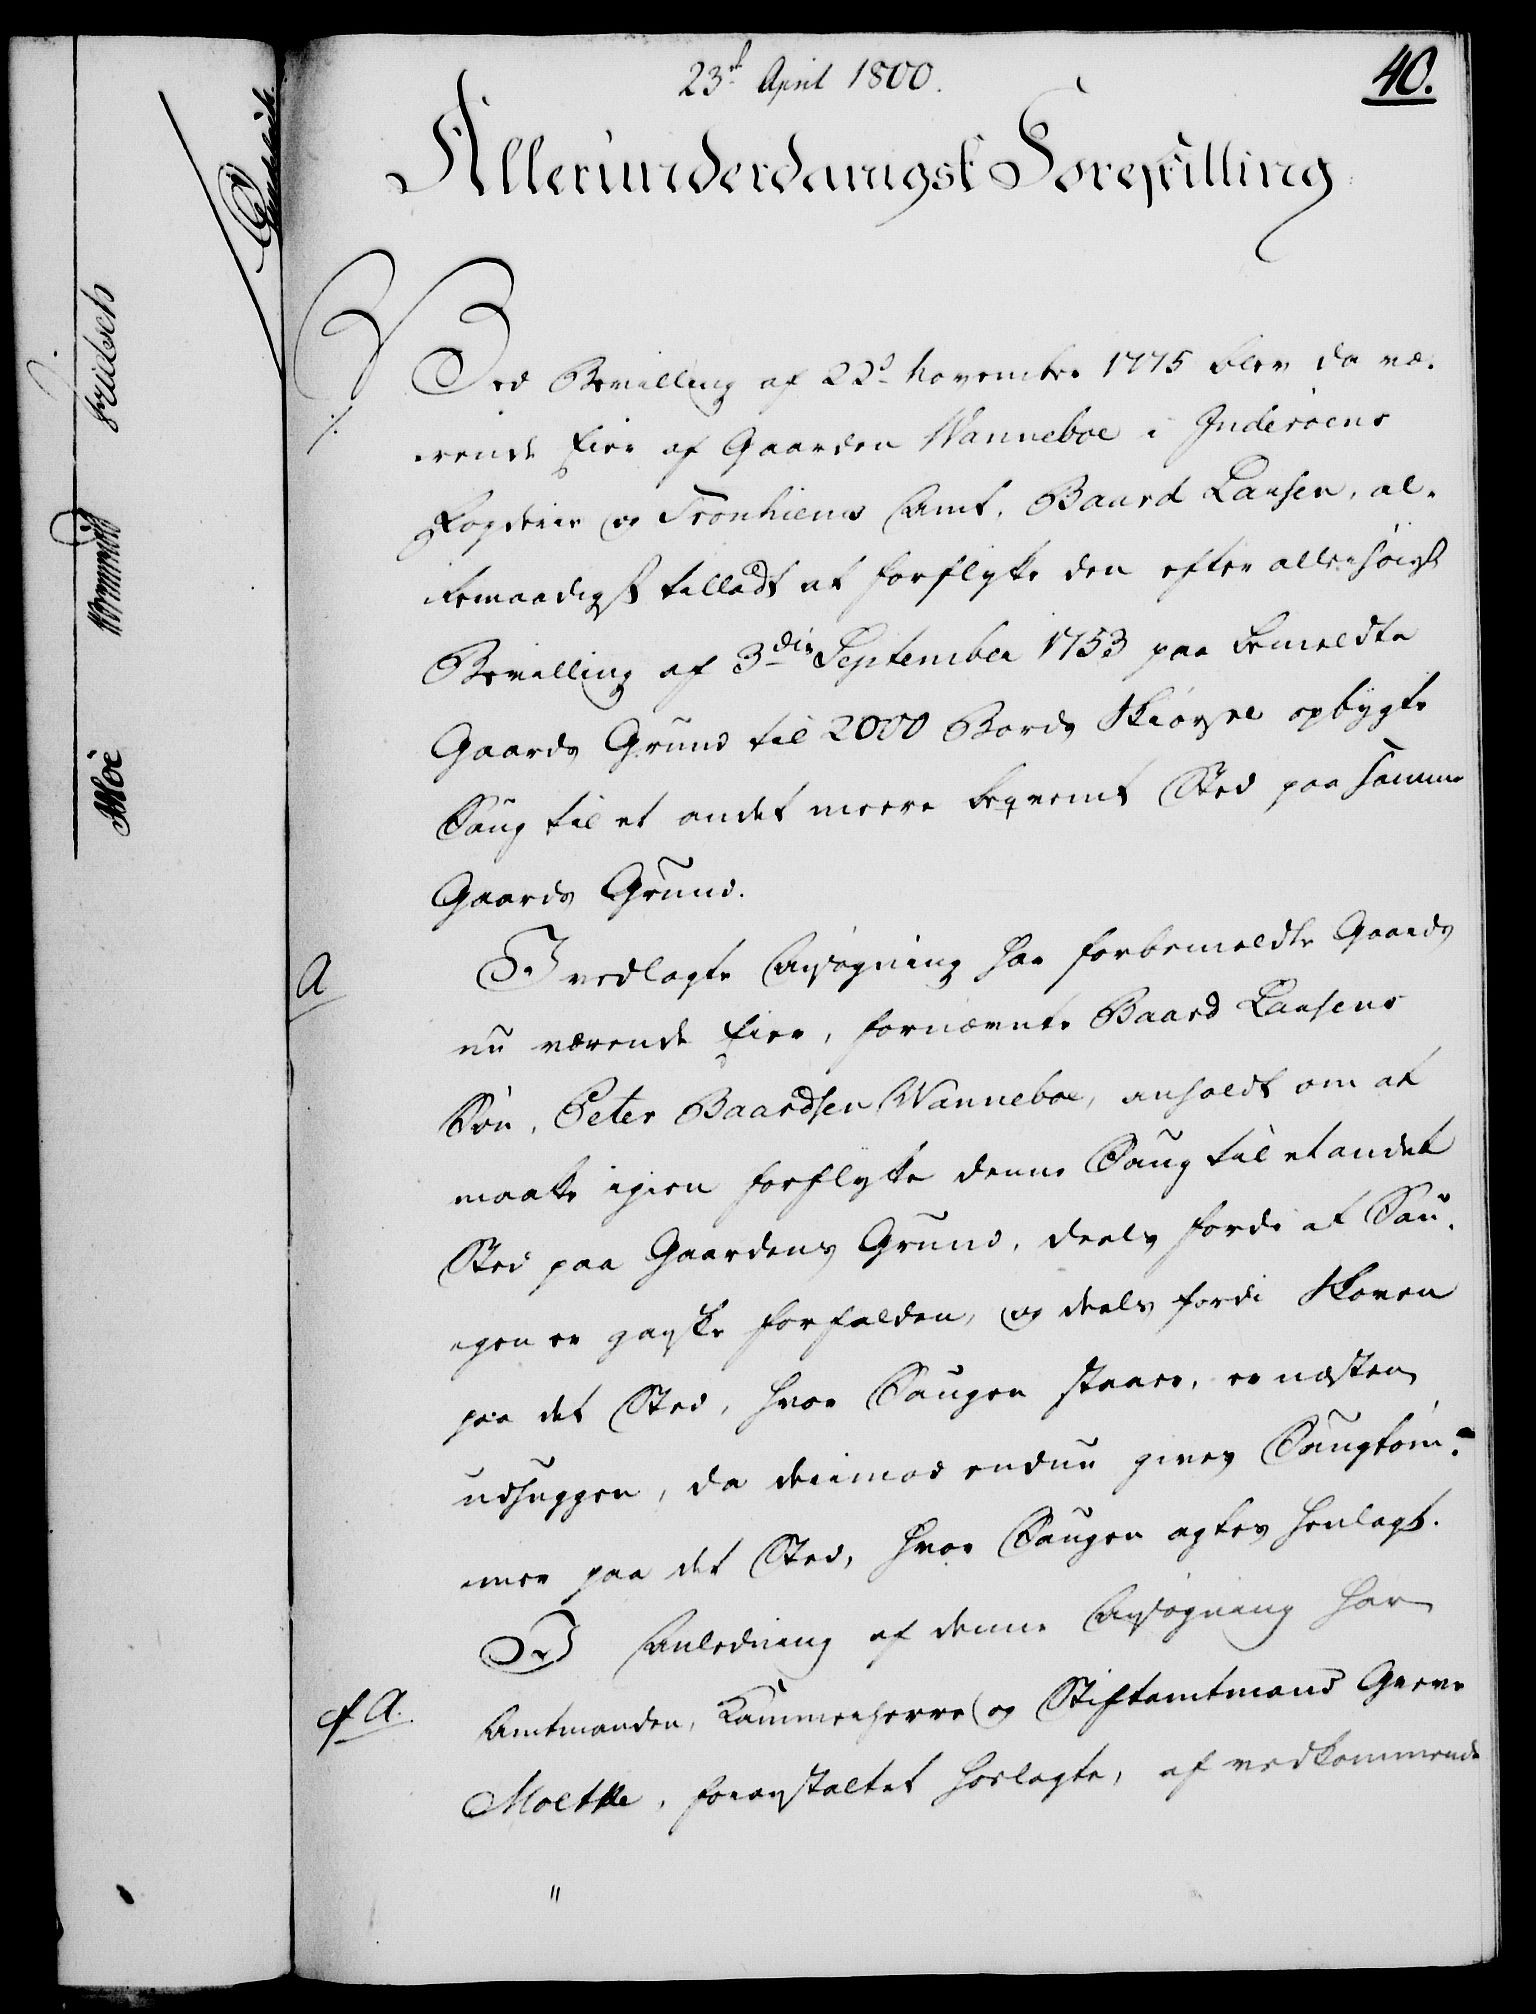 23d April 1800.
40.
Allerunderdanigst Forestilling
Ved Bevilling af 22d November 1775 blev da væ-
rende Eier af Gaarden Wanneboe i Inderöens
Fogderie og Tronhiems Amt, Baard Larsen, al-
lernaadigst tilladt at forflytte den efter allerhöiest
Bevilling af 3die September 1753 paa bemeldte
Gaards Grund til 2000 Bords Skiörsel opbygte
Saug til et andet meere beqvemt Sted paa samme
Gaards Grund.
A
I vedlagte Ansögning har forbemeldte Gaards
nu værende Eier, fornævnte Baard Larsens
Sön, Peter Baardsen Wanneboe, anholdt om at
maatte igien forflytte denne Saug til et andet
Sted paa Gaardens Grund, deels fordi at Sau-
gen er ganske forfalden, og deels fordi Skoven
paa det Sted, hvor Saugen staaer, er næsten
udhuggen, da derimod endnu gives Saugtöm-
mer paa det Sted, hvor Saugen agtes henlagt.
I Anledning af denne Ansögning har
cf A.
Amtmanden, Kammerherre og Stiftamtmand Greve
Moltke, foranstaltet hoslagte, af vedkommende
"
Moe